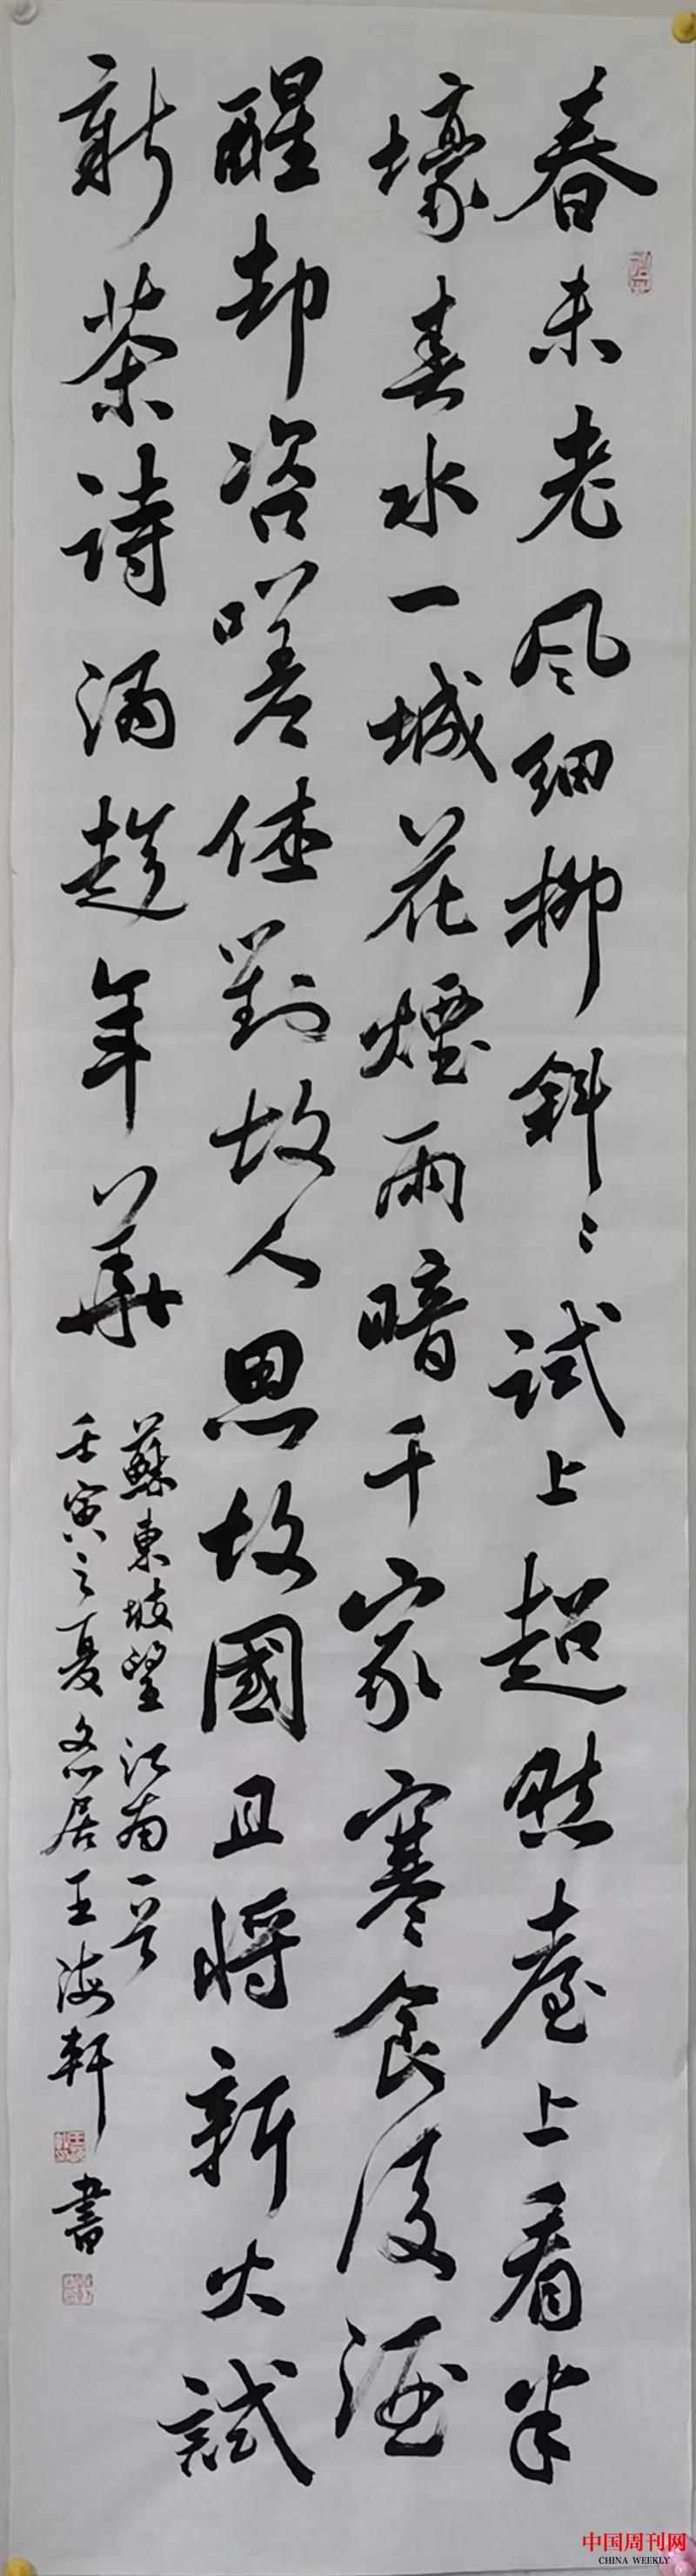 春未老风细柳斜〻试上超然臺上看半
壕春水一城花煙雨暗千家寒食後酒
醒却咨嗟休對故人思故國且將新火試
新茶詩酒趁年華
蘇東坡望江南一首
壬寅之夏文心居王海軒書
中国周刊网
CHINA WEEKLY